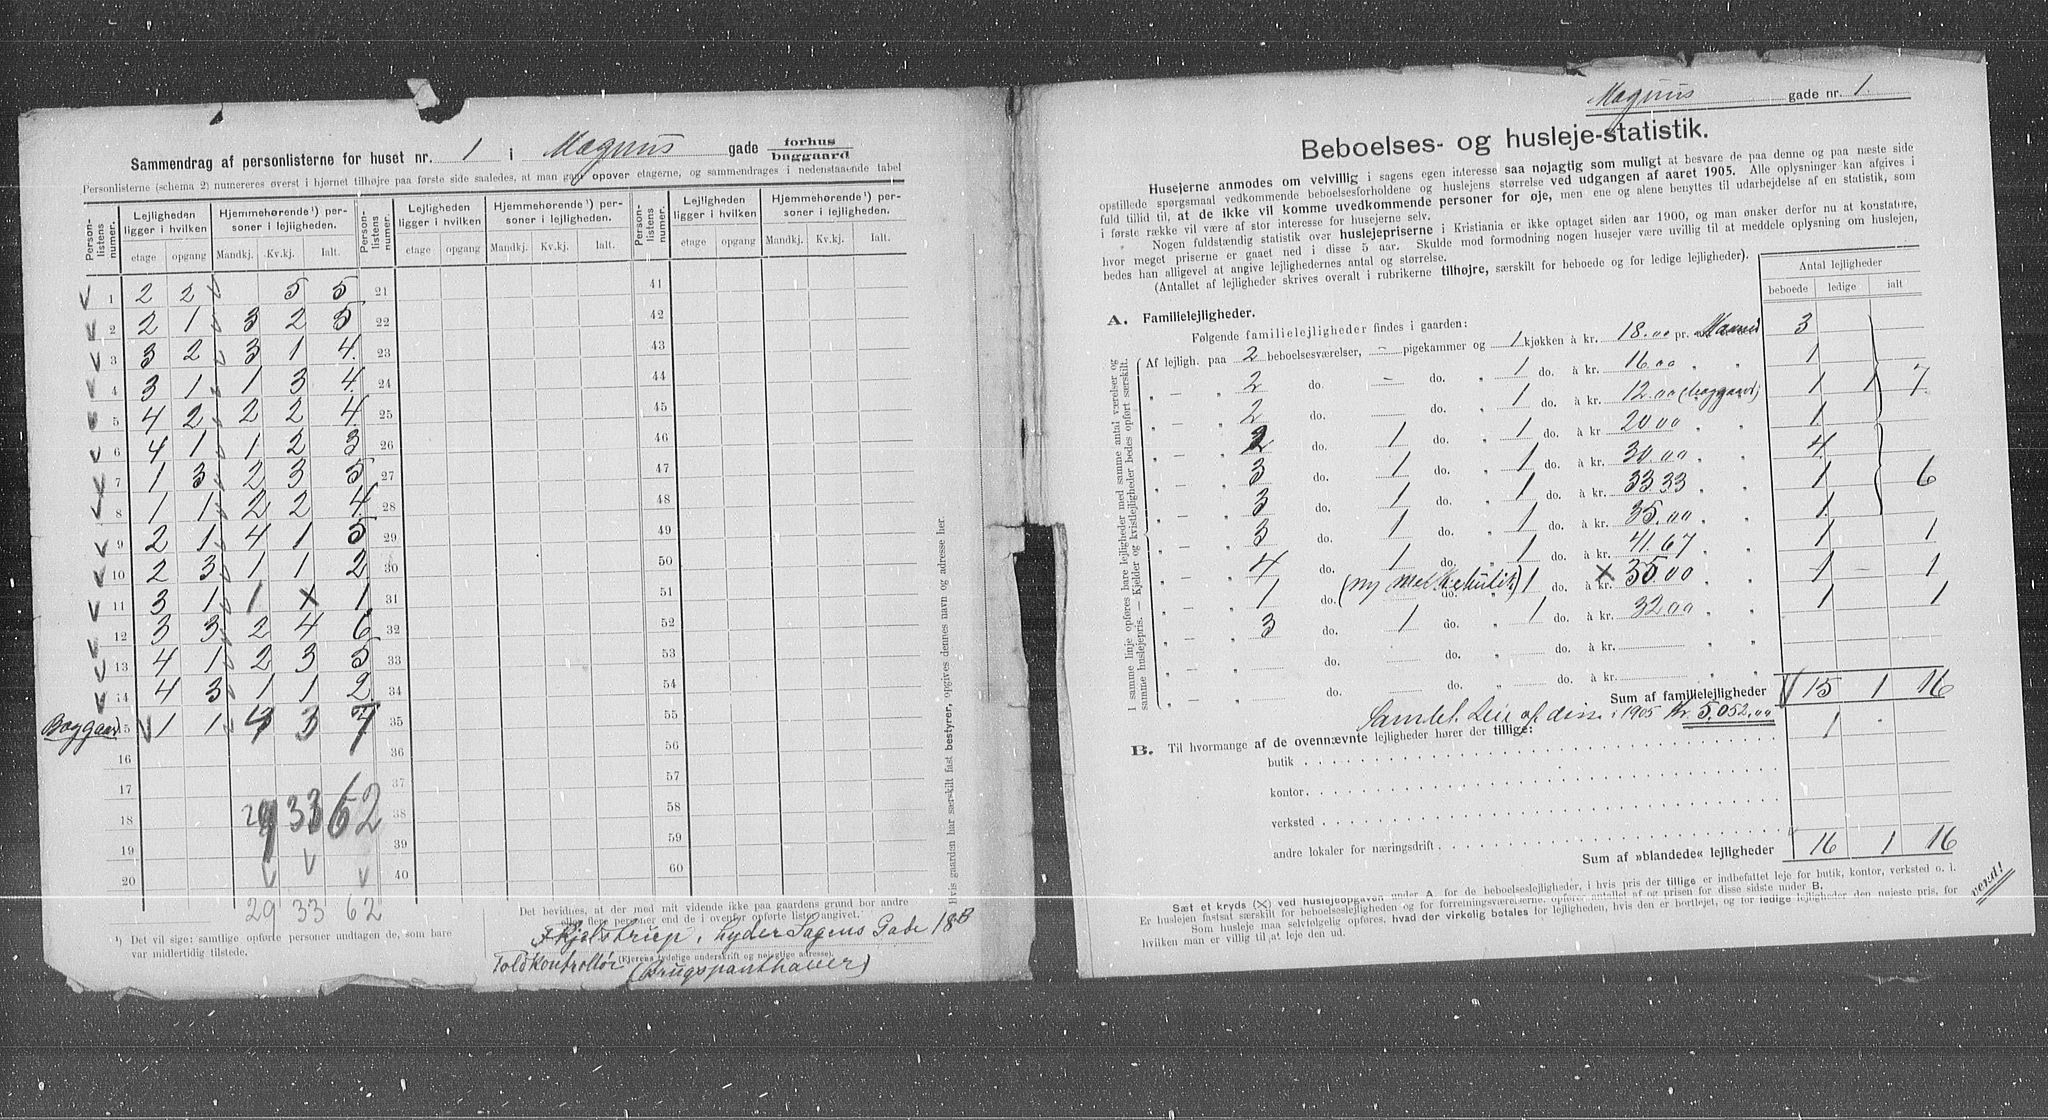 Sammendrag af personlisterne for huset nr. 1 i Magnus gade forhus baggaard
Personlisterne (schema 2) numereres øverst i hjørnet tilhøjre paa første side saaledes, at man gaar opover etagerne, og sammendrages i nedenstaaende tabel
Person-listens numer. Lejligheden ligger i hvilken Hjemmehørende¹) personer i lejligheden. Person-listens numer. Lejligheden ligger i hvilken Hjemmehørende¹) personer i lejligheden. Person-listens numer. Lejligheden ligger i hvilken Hjemmehørende¹) personer i lejligheden.
etage opgang Mandkj. Kv.kj. Ialt. etage opgang Mandkj. Kv.kj. Ialt. etage opgang Mandkj. Kv.kj. Ialt.
1 2 2 5 5 21 41
2 2 1 3 2 5 22 42
3 3 2 3 1 4 23 43
4 3 1 1 3 4 24 44
5 4 2 2 2 4 25 45
6 4 1 1 2 3 26 46
7 1 3 2 3 5 27 47
8 1 1 2 2 4 28 48
9 2 1 4 1 5 29 49
10 2 3 1 1 2 30 50
11 3 1 1 x 1 31 51
12 3 3 2 4 6 32 52
13 4 1 2 3 5 33 53
14 4 3 1 1 2 34 54
Baggaard 15 1 1 4 3 7 35 55
16 36 56
17 37 57
18 29 33 62 38 58
19 39 59
20 40 60
29 33 62
¹) Det vil sige: samtlige opførte personer undtagen de, som bare
var midlertidig tilstede.
Det bevidnes, at der med mit vidende ikke paa gaardens grund bor andre
eller flere personer end de i ovenfor opførte lister angivet.
F Kjelstrup, Lyder Sagens Gade 18B
(Ejerens tydelige underskrift og nøjagtige adresse).
Toldkontrollør (Brugspanthaver)
Hvis gaarden har særskilt fast bestyrer, opgives dennes navn og adresse her.
Magnus gade nr. 1.
Beboelses- og husleje-statistik.
Husejerne anmodes om velvillig i sagens egen interesse saa nøjagtig som muligt at besvare de paa denne og paa næste side
opstillede spørgsmaal vedkommende beboelsesforholdene og huslejens størrelse ved udgangen af aaret 1905. Alle oplysninger kan afgives i
fuld tillid til, at de ikke vil komme uvedkommende personer for øje, men ene og alene benyttes til udarbejdelse af en statistik, som
i første række vil være af stor interesse for husejerne selv.
Nogen fuldstændig statistik over huslejepriserne i Kristiania er ikke optaget siden aar 1900, og man ønsker derfor nu at konstatere,
hvor meget priserne er gaaet ned i disse 5 aar. Skulde mod formodning nogen husejer være uvillig til at meddele oplysning om huslejen,
bedes han alligevel at angive lejlighedernes antal og størrelse.
(Antallet af lejligheder skrives overalt i rubrikerne tilhøjre, særskilt for beboede og for ledige lejligheder).
Antal lejligheder
beboede ledige ialt
A. Familielejligheder.
Følgende familielejligheder findes i gaarden:
I samme linje opføres bare lejligheder med samme antal værelser og
samme huslejepris. — Kjelder og kvistlejligheder bedes opført særskilt.
Af lejligh. paa 2 beboelsesværelser, - pigekammer og 1 kjøkken à kr. 18.00 pr. Maaned 3
„ — „ 2 do. - do. „ 1 do. à kr. 16.00 „ „ 1
„ — „ 2 do. do. „ 1 do. à kr. 12.00 (baggaard) 1 1 7
„ — „ 2 do. 1 do. „ 1 do. à kr. 20.00 „ „ 1
„ — „ 3 do. 1 do. „ 1 do. à kr. 30.00 „ „ 4
„ — „ 3 do. 1 do. „ 1 do. à kr. 33.33 „ „ 1 6
„ — „ 3 do. 1 do. „ 1 do. à kr. 35.00 „ „ 1
„ — „ 4 do. 1 do. „ 1 do. à kr. 41.67 „ „ 1 1
„ — „ 1 do. (ny melkebutik) do. 1 do. x à kr. 35.00 „ „ 1 - 1
„ — „ 3 do. 1 do. „ 1 do. à kr. 32.00 „ „ 1 1
„ — „ do. do. „ do. à kr.
„ — „ do. do. „ do. à kr.
Sum af familielejligheder 15 1 16
Samlet Leie af disse i 1905 Kr. 5.052.00
B. Til hvormange af de ovennævnte lejligheder hører der tillige:
butik 1
kontor
verksted
andre lokaler for næringsdrift
Sum af »blandede« lejligheder 16 1 16
Sæt et kryds (×) ved huslejeopgaven under A. for de beboelseslejligheder, i hvis pris der tillige er indbefattet leje for butik, kontor, verksted o. l.
Er huslejen fastsat særskilt for beboelseslejligheden og for forretningsværelserne, opføres antallet af og prisen for disse sidste under B.
Som husleje maa selvfølgelig opføres, hvad der virkelig betales for lejligheden, hvis den er bortlejet, og for ledige lejligheder den nøjeste pris, for
hvilken man er villig til at leje den ud.
vend!